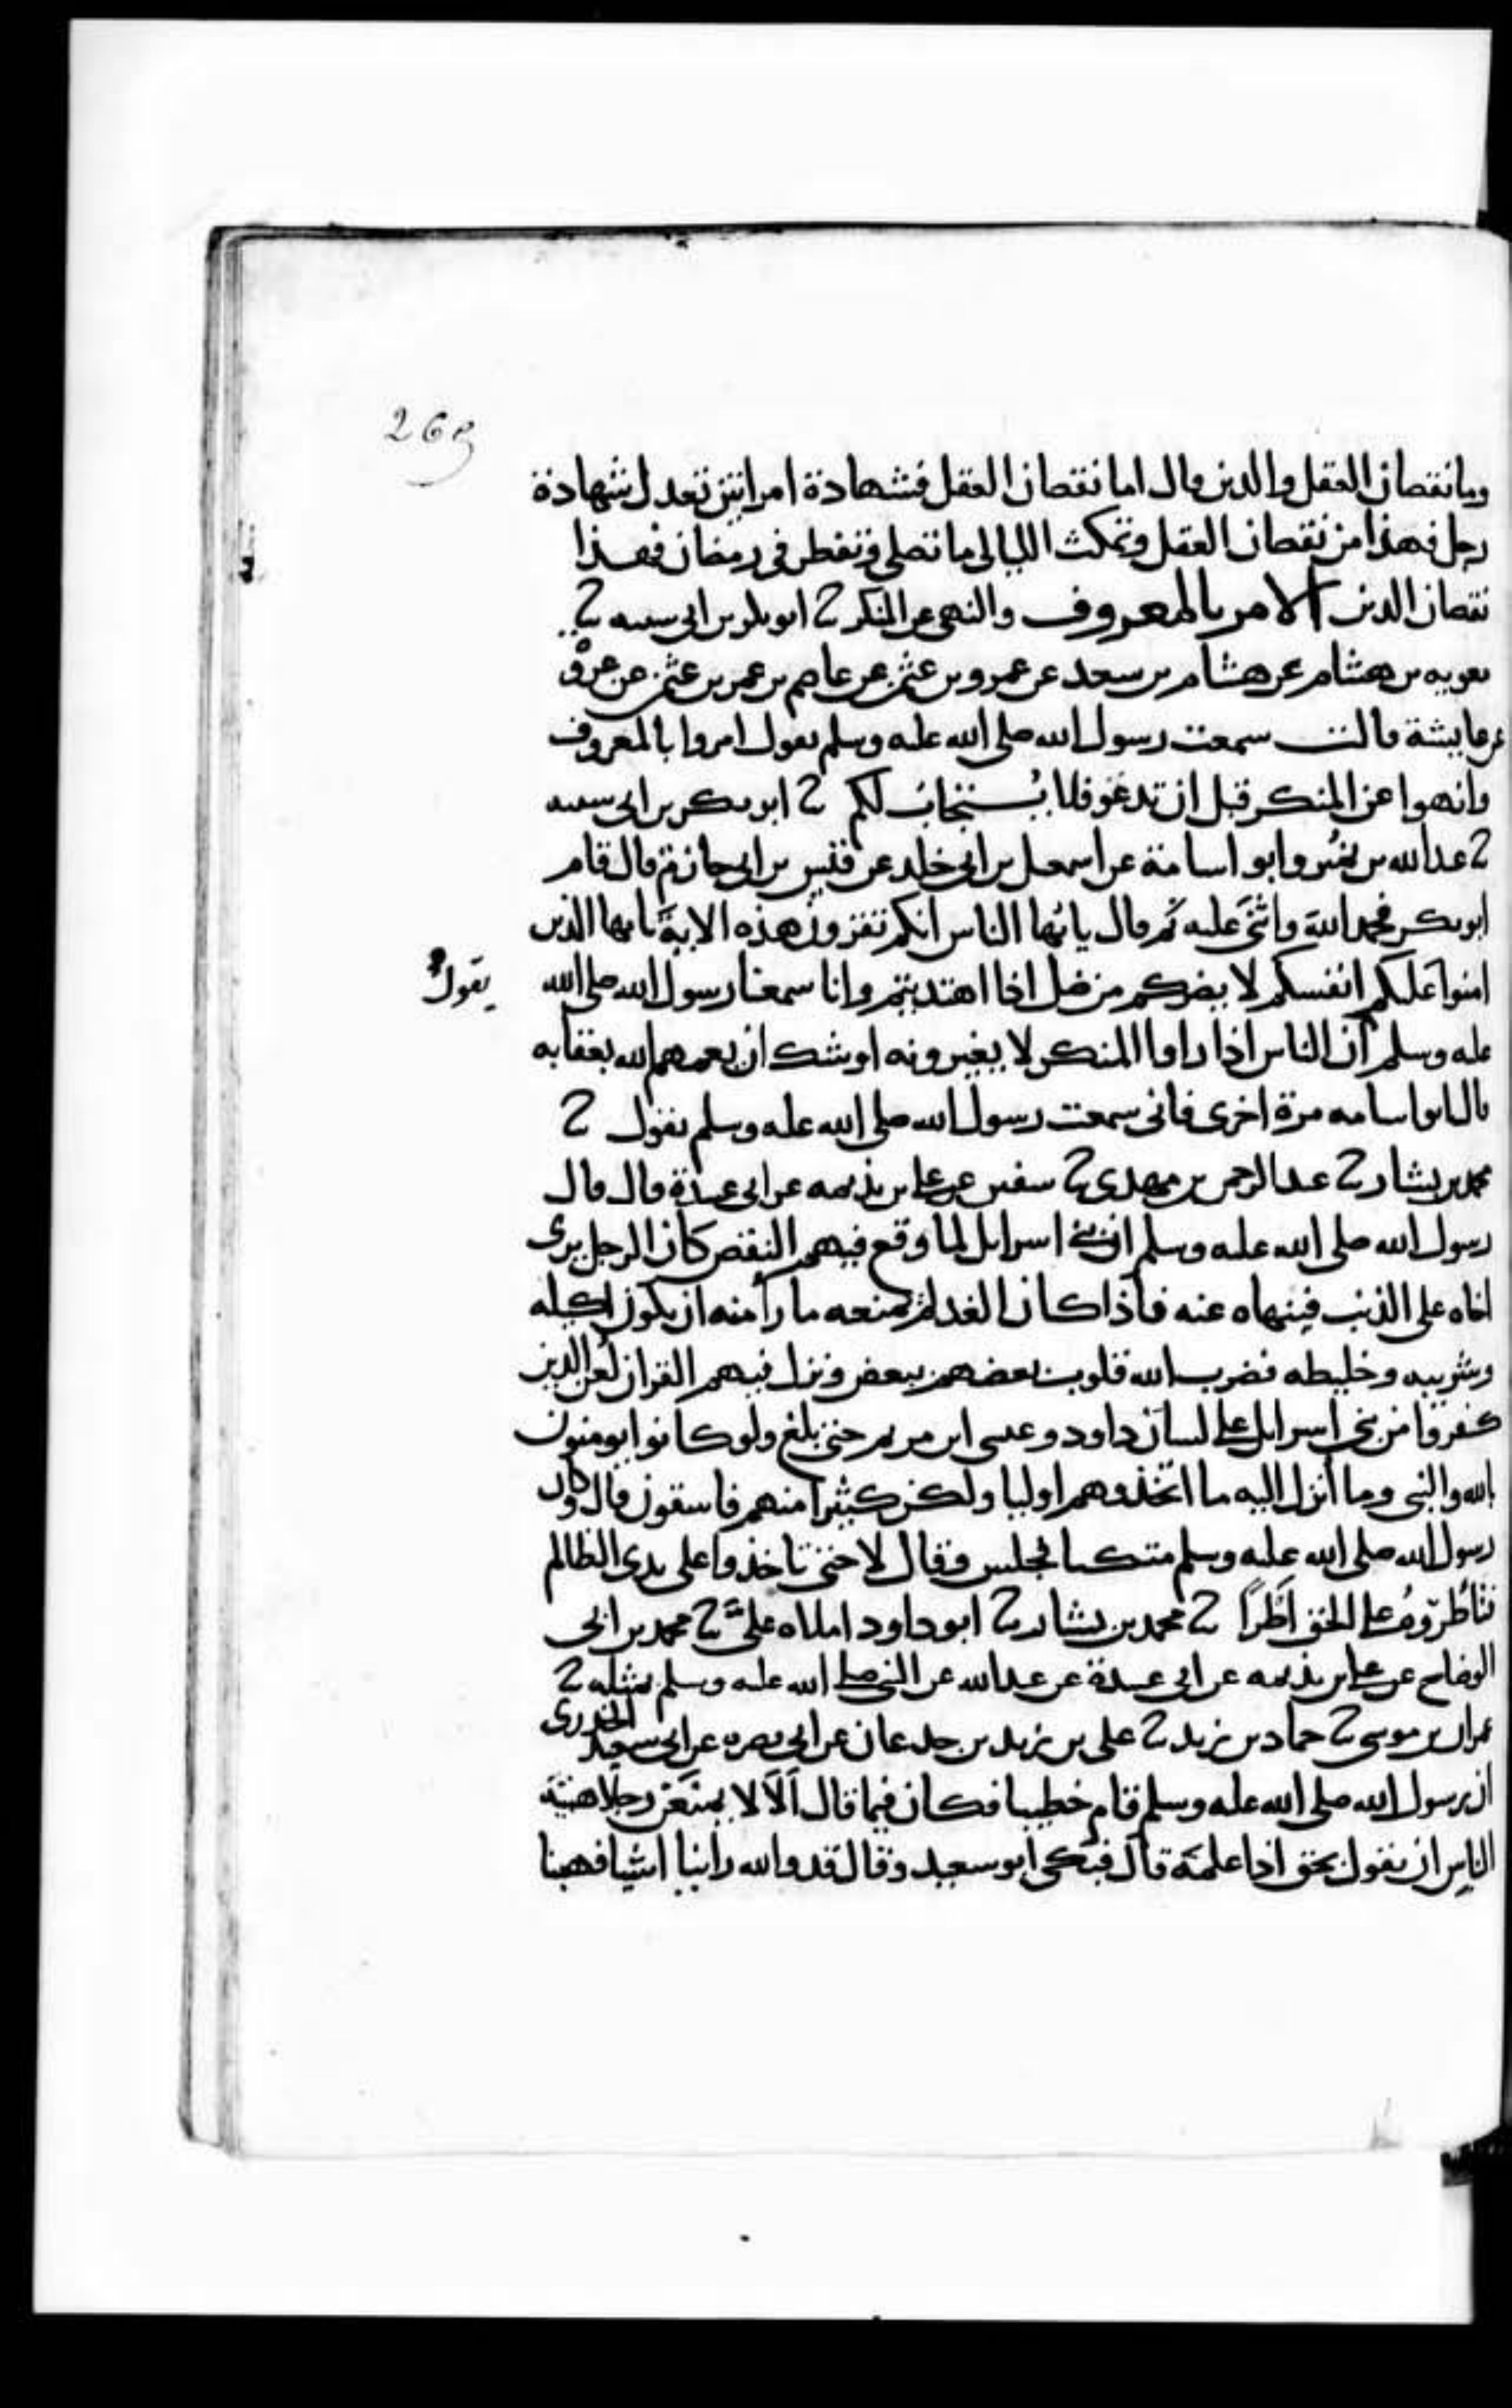 269
وما نقصان العقل والدين قال اما نقصان العقل فشهادة امراتين تعدل شهادة
رجل فهذا من نقصان العقل وتمكث الليالى ما تصلى وتفطر فى رمضان فهذا
نقصان الدين الامر بالمعروف والنهى عن المنكر ح ابو بكر بن ابى شيبه ح
معويه بن هشام عن هشام بن سعد عن عمرو بن عثمن عن عاصم بن عمر بن عثمن عن عروة
عن عايشة قالت سمعت رسول الله صلى الله عليه وسلم يقول امروا بالمعروف
وانهوا عن المنكر قبل ان تدعو فلا يُستجابُ لكم ح ابو بكر بن ابى شيبه
ح عبد الله بن نمير وابو اسامة عن اسمعيل بن ابى خلد عن قيس بن ابى حازم قال قام
ابو بكر فحمد الله واثنى عليه ثم قال يا يُها الناس انكم تقرون هذه الاية يا يها الذين
امنوا عليكم انفسكم لا يضركم من ضل اذا اهتديتم وانا سمعنا رسول الله صلى الله
يقول
عليه وسلم ان الناس اذا راوا المنكر لا يغيرونه اوشك ان يعمهم الله بعقابه
قال ابو اسامه مرة اخرى فانى سمعت رسول الله صلى الله عليه وسلم يقول ح
محمد بن بشار ح عبد الرحمن بن مهدى ح سفين عن على بن بذيمه عن ابى عبيدة قال قال
رسول الله صلى الله عليه وسلم ان بنى اسرايل لما وقع فيهم النقص كان الرجل يرى
اخاه على الذنب فينهاه عنه فاذا كان الغد لم يمنعه ما رأ منه ان يكون اكيله
وشريبه وخليطه فضرب الله قلوب بعضهم ببعض ونزل فيهم القران لُعن الذين
كفروا من بنى اسرايل على لسان داود وعيسى ابن مريم حتى بلغ ولو كانوا يومنون
بالله والنبى وما أنزل اليه ما اتخذوهم اوليا ولكن كثيرا منهم فاسقون قال وكان
رسول الله صلى الله عليه وسلم متكيا فجلس وقال لا حتى تاخذوا على يدى الظالم
فتأطروه على الحق اَطْرًا ح محمد بن بشار ح ابو داود املاه علىَّ ح محمد بن ابى
الوضاح عن على بن بذيمه عن ابى عبيدة عن عبد الله عن النبى صلى الله عليه وسلم بمثله ح
عمران بن موسى ح حماد بن زيد ح على بن زيد بن جدعان عن ابى نضره عن ابى سعيد الخدرى
ان رسول الله صلى الله عليه وسلم قام خطيبا فكان فيما قال اَلَا لا يمنعَن رجلا هيبة
الناس ان يقول بحق اذا علمَه قال فبكى ابو سعيد وقال قد والله راينا اشيا فهبنا